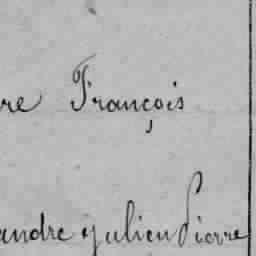 re François
andre Julien Pierre